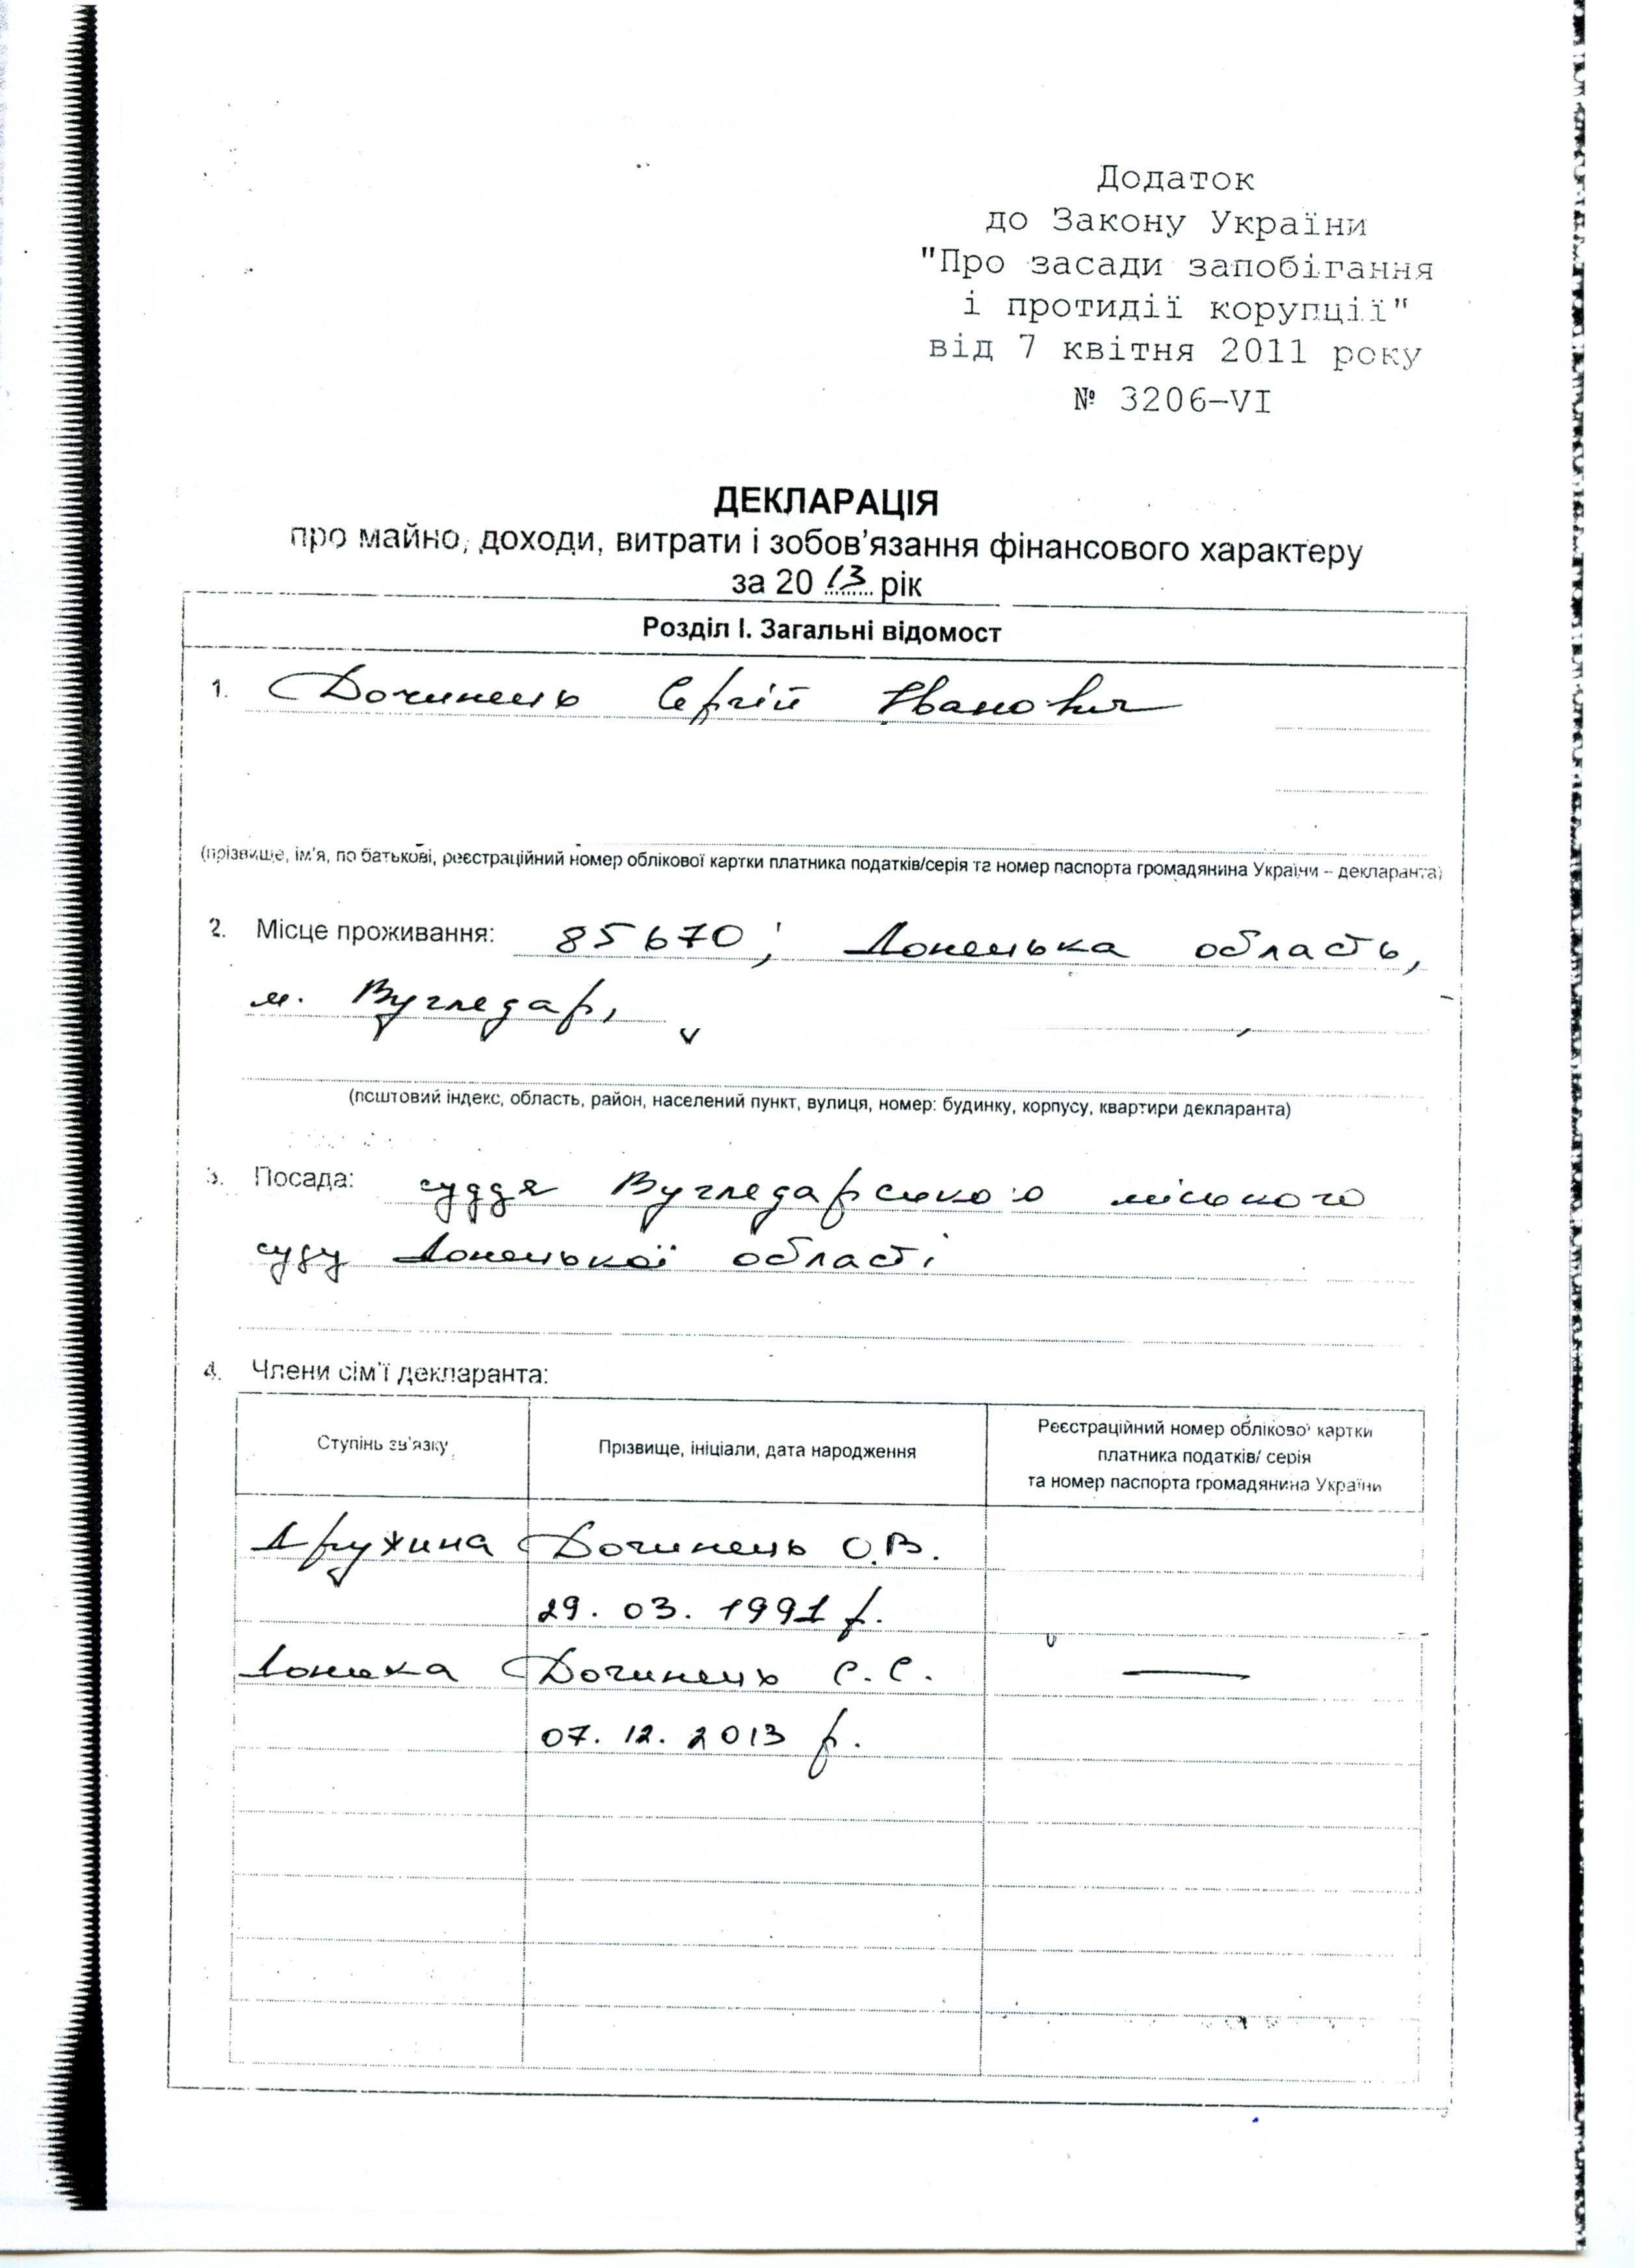 Додаток
до Закону України
"Про засади запобігання
і протидії корупції"
від 7 квітня 2011 року
№ 3206-VI
ДЕКЛАРАЦІЯ
про майно, доходи, витрати і зобов'язання фінансового характеру
за 2013 рік
Розділ І. Загальні відомост
1. Дочинець Сергій Іванович
(прізвище, ім'я, по батькові, реєстраційний номер облікової картки платника податків/серія та номер паспорта громадянина України – декларанта)
2. Місце проживання: 85670, Донецька область,
м. Вугледар,
(поштовий індекс, область, район, населений пункт, вулиця, номер: будинку, корпусу, квартири декларанта)
3. Посада: суддя Вугледарського міського
суду Донецької області
4. Члени сім'ї декларанта:
Ступінь зв'язку Прізвище, ініціали, дата народження Реєстраційний номер облікової картки
платника податків/ серія
та номер паспорта громадянина України
Дружина Дочинець О.В.
29. 03. 1991 р.
Донька Дочинець С.С. —
07. 12. 2013 р.